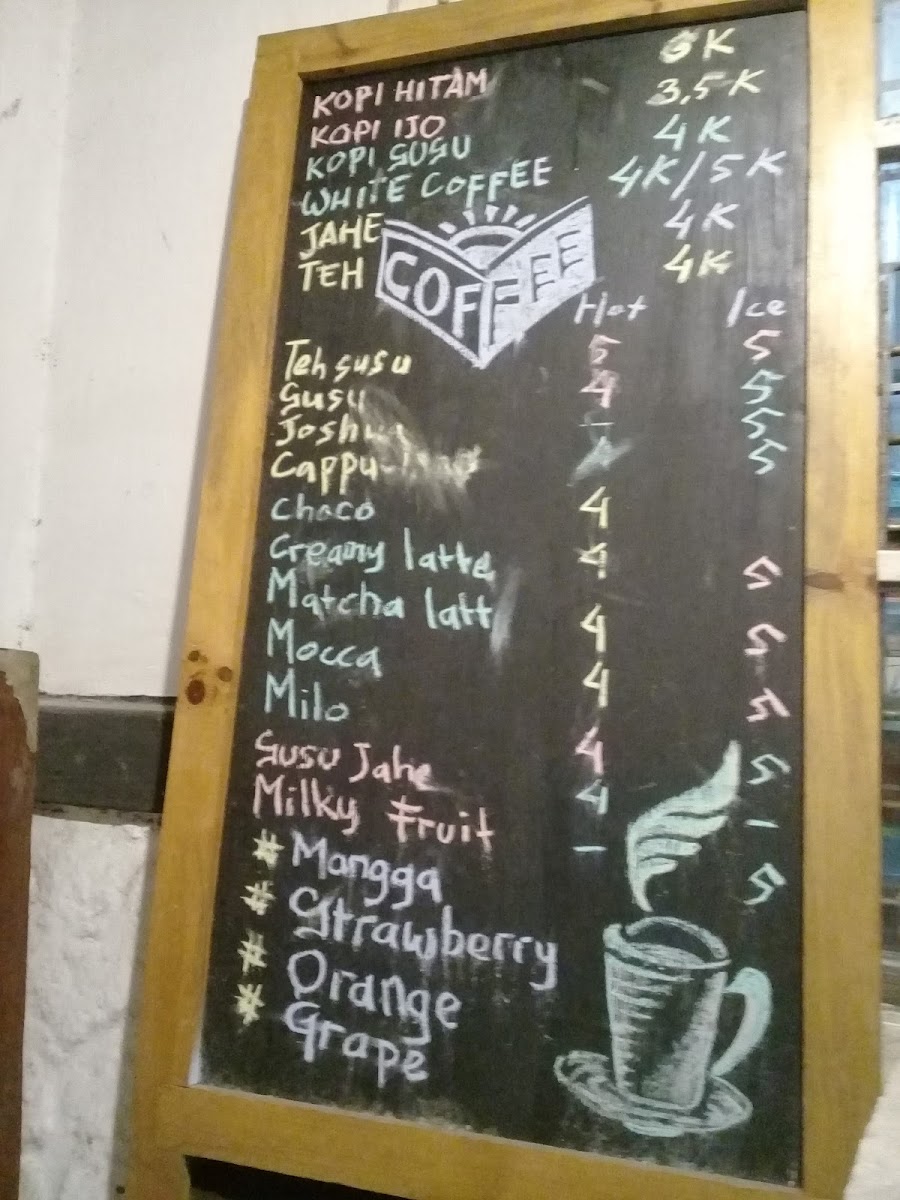 KOPI HITAM 6K
KOPI IJO 3,5K
KOPI SUSU 4K
WHITE COFFEE 4K/5K
JAHE 4K
TEH 4K
COFFEE
Hot Ice
Teh susu 5 5
Susu 4 5
- 5
5
Choco 4
Creamy latte 4 5
Matcha latt 4 5
Mocca 4 5
Milo 4 5
Susu Jahe 4 -
Milky Fruit - 5
# Mangga
# Strawberry
# Orange
# Grape